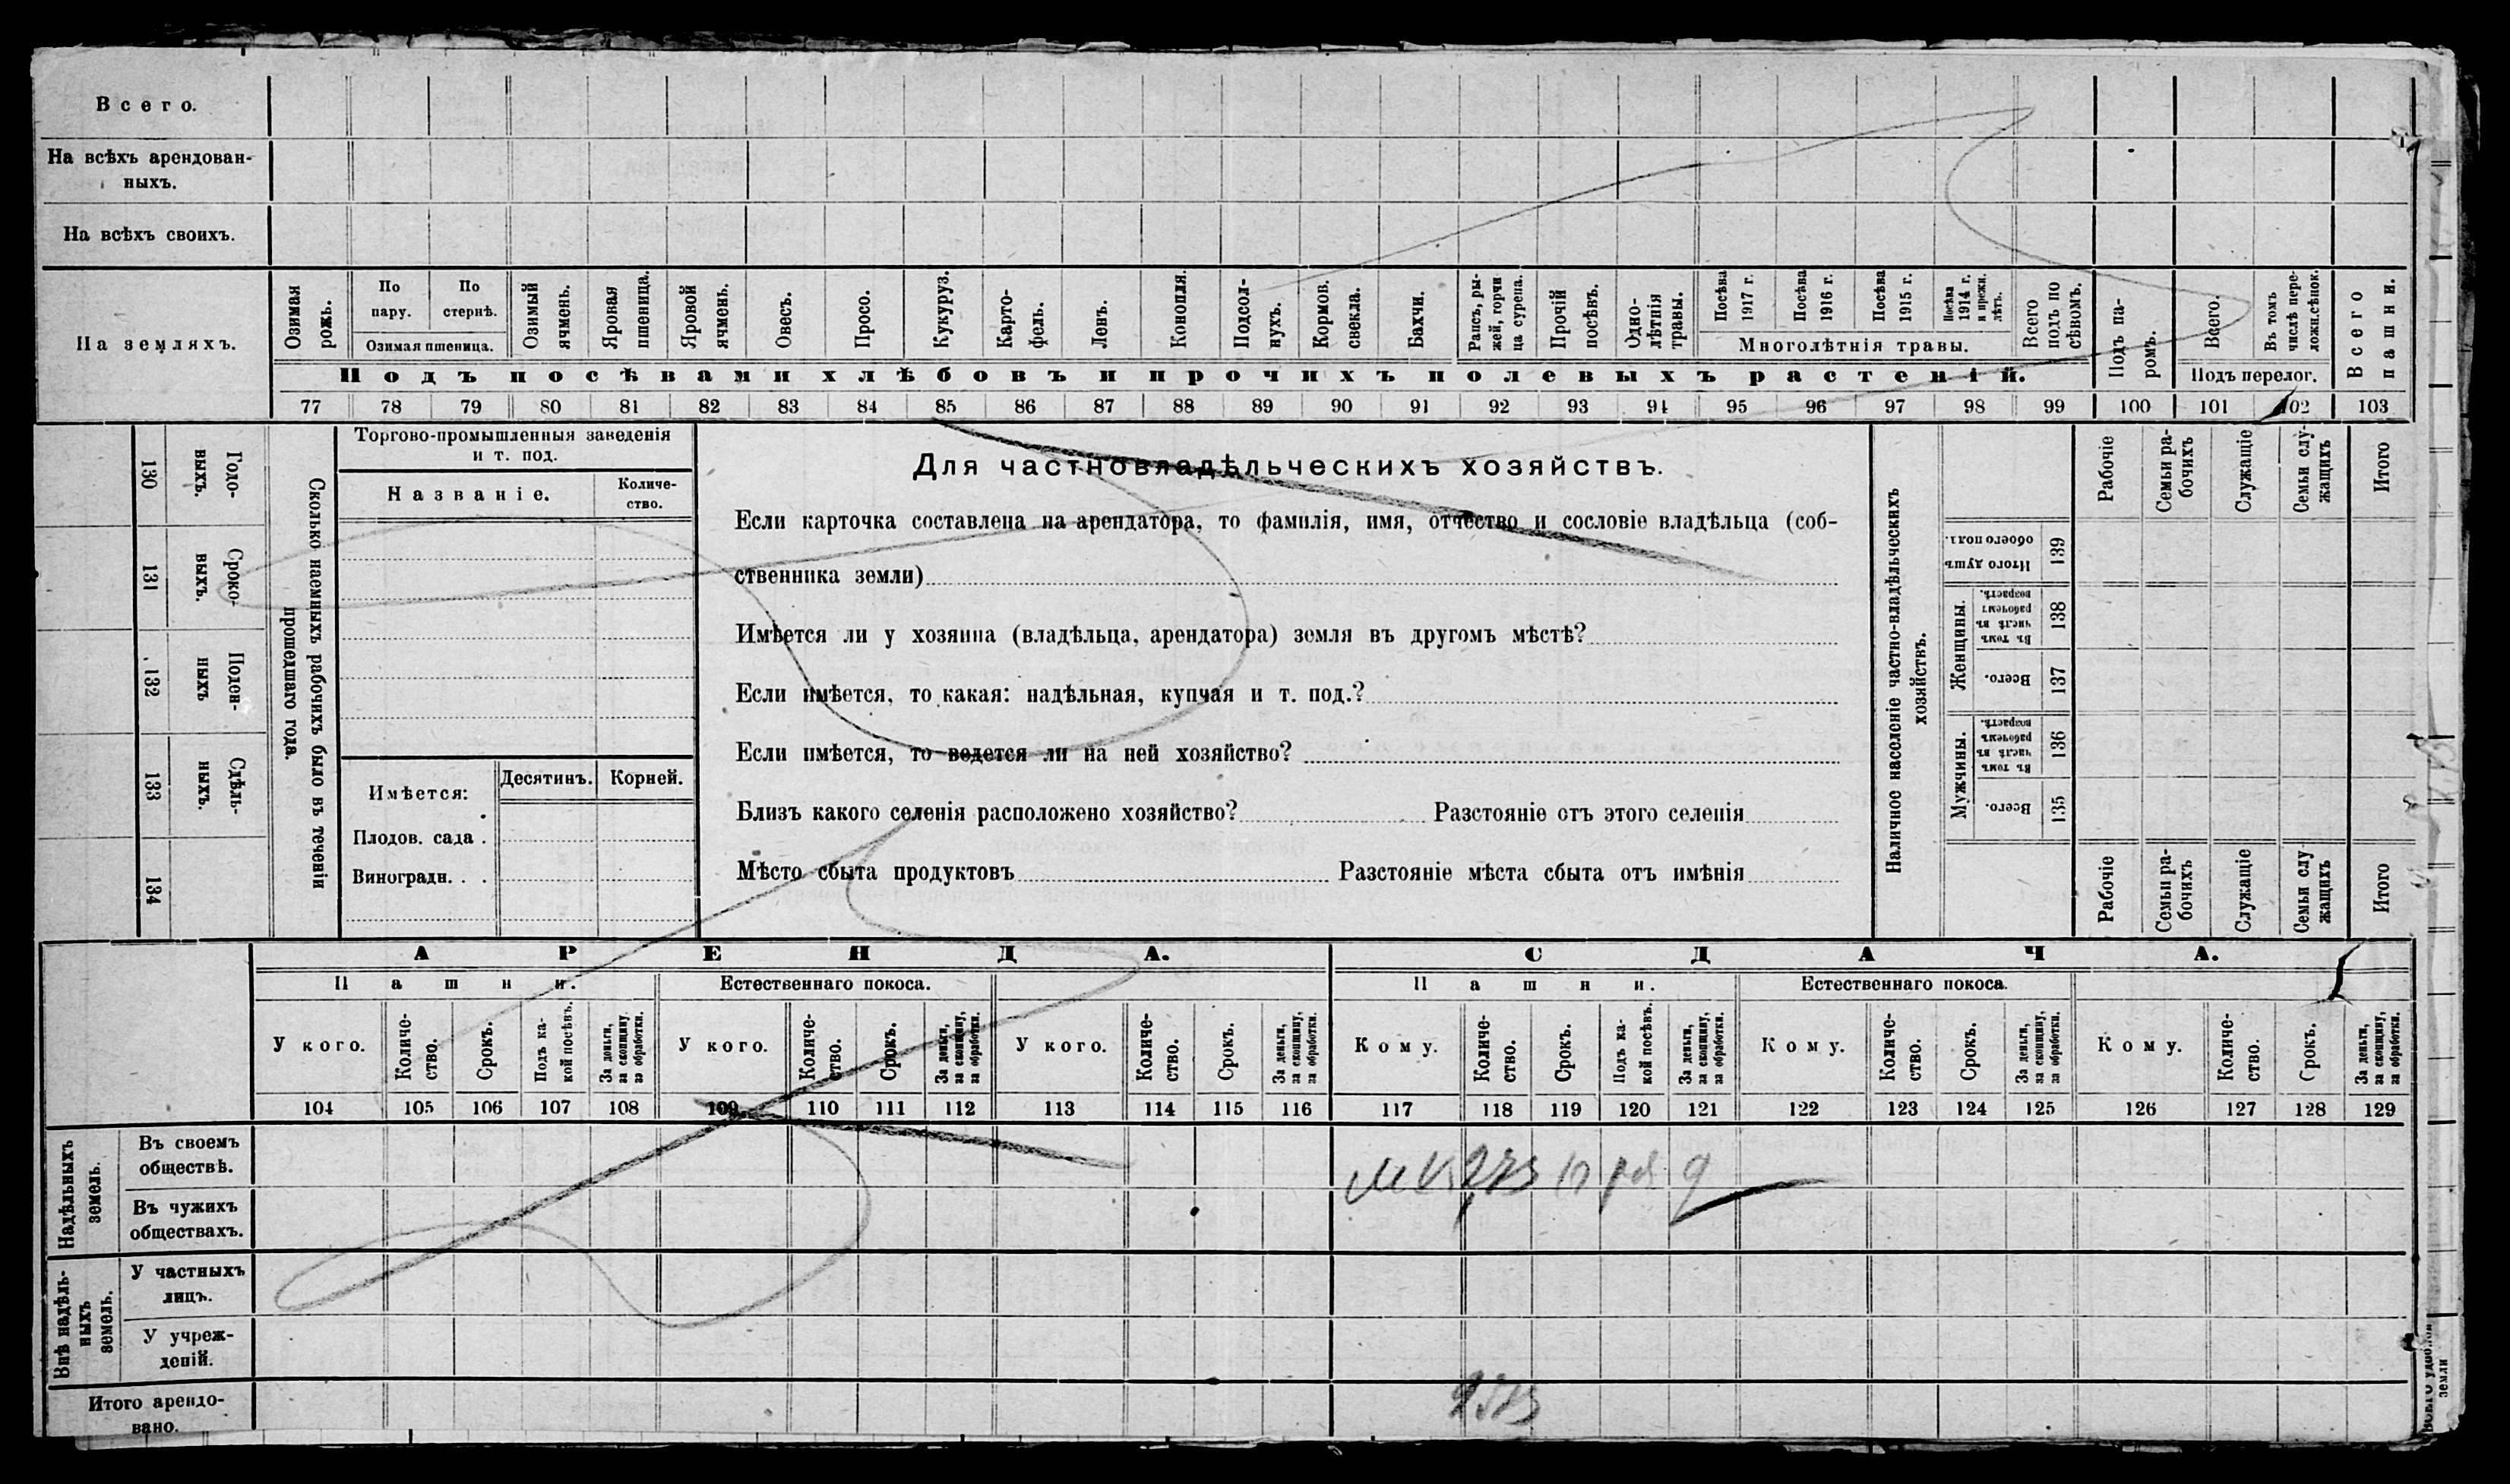 Всего.
На всѣхъ арендован-
ныхъ.
На всѣхъ своихъ.
На земляхъ.
Озимая рожь.
По пару.
По стернѣ.
Озимая пшеница.
Озимый ячмень.
Яровая пшеница.
Яровой ячмень.
Овесъ.
Просо.
Кукуруз.
Карто-
фель.
Ленъ.
Конопля.
Подсол-
нухъ.
Кормов. свекла.
Бахчи.
Рапсъ, ры-
жей, горчи
ца сурепа.
Прочій посѣвъ.
Одно-
лѣтнія
травы.
Посѣва 1917 г.
Посѣва 1916 г.
Посѣва 1915 г.
Посѣва 1914 г. и прежн. лѣтъ.
Многолѣтнія травы.
Всего подъ по
сѣвомъ.
Подъ па-
ромъ.
Всего.
Въ томъ числѣ пере-
ложн.сѣнок.
Подъ перелог.
Всего пашни.
Подъ посѣвами хлѣбовъ и прочихъ полевыхъ растеній.
77 78 79 80 81 82 83 84 85 86 87 88 89 90 91 92 93 94 95 96 97 98 99 100 101 102 103
Годо-
выхъ.
130
Сроко-
выхъ.
131
Поден-
ныхъ
132
Сдѣль-
ныхъ.
133
134
Сколько наемныхъ рабочихъ было въ теченіи
прошедшаго года.
Торгово-промышленныя заведенія
и т. под.
Названіе.
Количе-
ство.
Имѣется:
Десятинъ.
Корней.
Плодов. сада .
Виноградн. . .
Для частновладѣльческихъ хозяйствъ.
Если карточка составлена на арендатора, то фамилія, имя, отчество и сословіе владѣльца (соб-
ственника земли)
Имѣется ли у хозяина (владѣльца, арендатора) земля въ другомъ мѣстѣ?
Если имѣется, то какая: надѣльная, купчая и т. под.?
Если имѣется, то ведется ли на ней хозяйство?
Близъ какого селенія расположено хозяйство? Разстояніе отъ этого селенія
Мѣсто сбыта продуктовъ Разстояніе мѣста сбыта отъ имѣнія
Наличное населеніе частно-владѣльческихъ
хозяйствъ.
Рабочіе
Семьи ра-
бочихъ
Служащіе
Семьи слу-
жащихъ
Итого
Итого душъ
обоего пола.
139
Женщины.
Въ томъ числѣ въ рабочемъ возрастѣ.
138
Всего.
137
Мужчины.
Въ томъ числѣ въ рабочемъ возрастѣ.
136
Всего.
135
Рабочіе
Семьи ра-
бочихъ
Служащіе
Семьи слу
жащихъ
Итого
АРЕНДА.
СДАЧА.
Пашни.
Естественнаго покоса.
Пашни.
Естественнаго покоса.
У кого.
Количе-
ство.
Срокъ.
Подъ ка-
кой посѣвъ.
За деньги,
за скопщину,
за обработки.
У кого.
Количе-
ство.
Срокъ.
За деньги,
за скопщину,
за обработки.
У кого.
Количе-
ство.
Срокъ.
За деньги,
за скопщину,
за обработки.
Кому.
Количе-
ство.
Срокъ.
Подъ ка-
кой посѣвъ.
За деньги,
за скопщину,
за обработки.
Кому.
Количе-
ство.
Срокъ.
За деньги,
за скопщину,
за обработки.
Кому.
Количе-
ство.
Срокъ.
За деньги,
за скопщину,
за обработки.
104 105 106 107 108 109 110 111 112 113 114 115 116 117 118 119 120 121 122 123 124 125 126 127 128 129
Надѣльныхъ
земель.
Въ своемъ
обществѣ.
Въ чужихъ
обществахъ.
Внѣ надѣль-
ныхъ
земель.
У частныхъ
лицъ.
У учреж-
деній.
Итого арендо-
вано.
земли